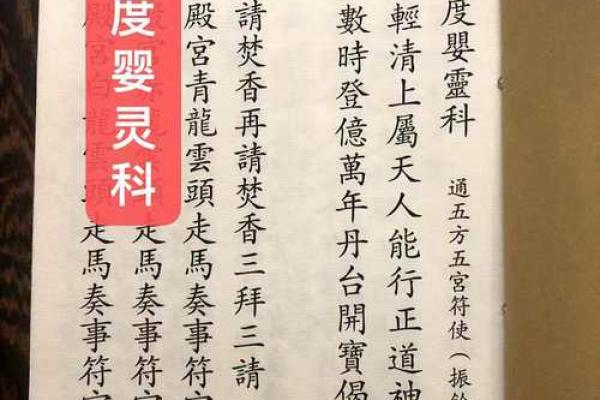 度嬰靈科 通五方五宮符使（振
輕清上屬天人能行正道神
數時登億萬年丹台開寶偈
請焚香再請焚香三拜三請
殿宮青龍雲頭走馬奏事符
走馬奏事符
宮白龍雲頭走馬奏事符
度婴灵科